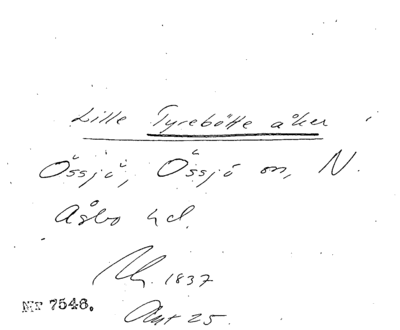 Lille Tyrebötte åker i
Össjö, Össjö sn, N.
Åsbo hd.
1837
Nr 7546. Akt 25.